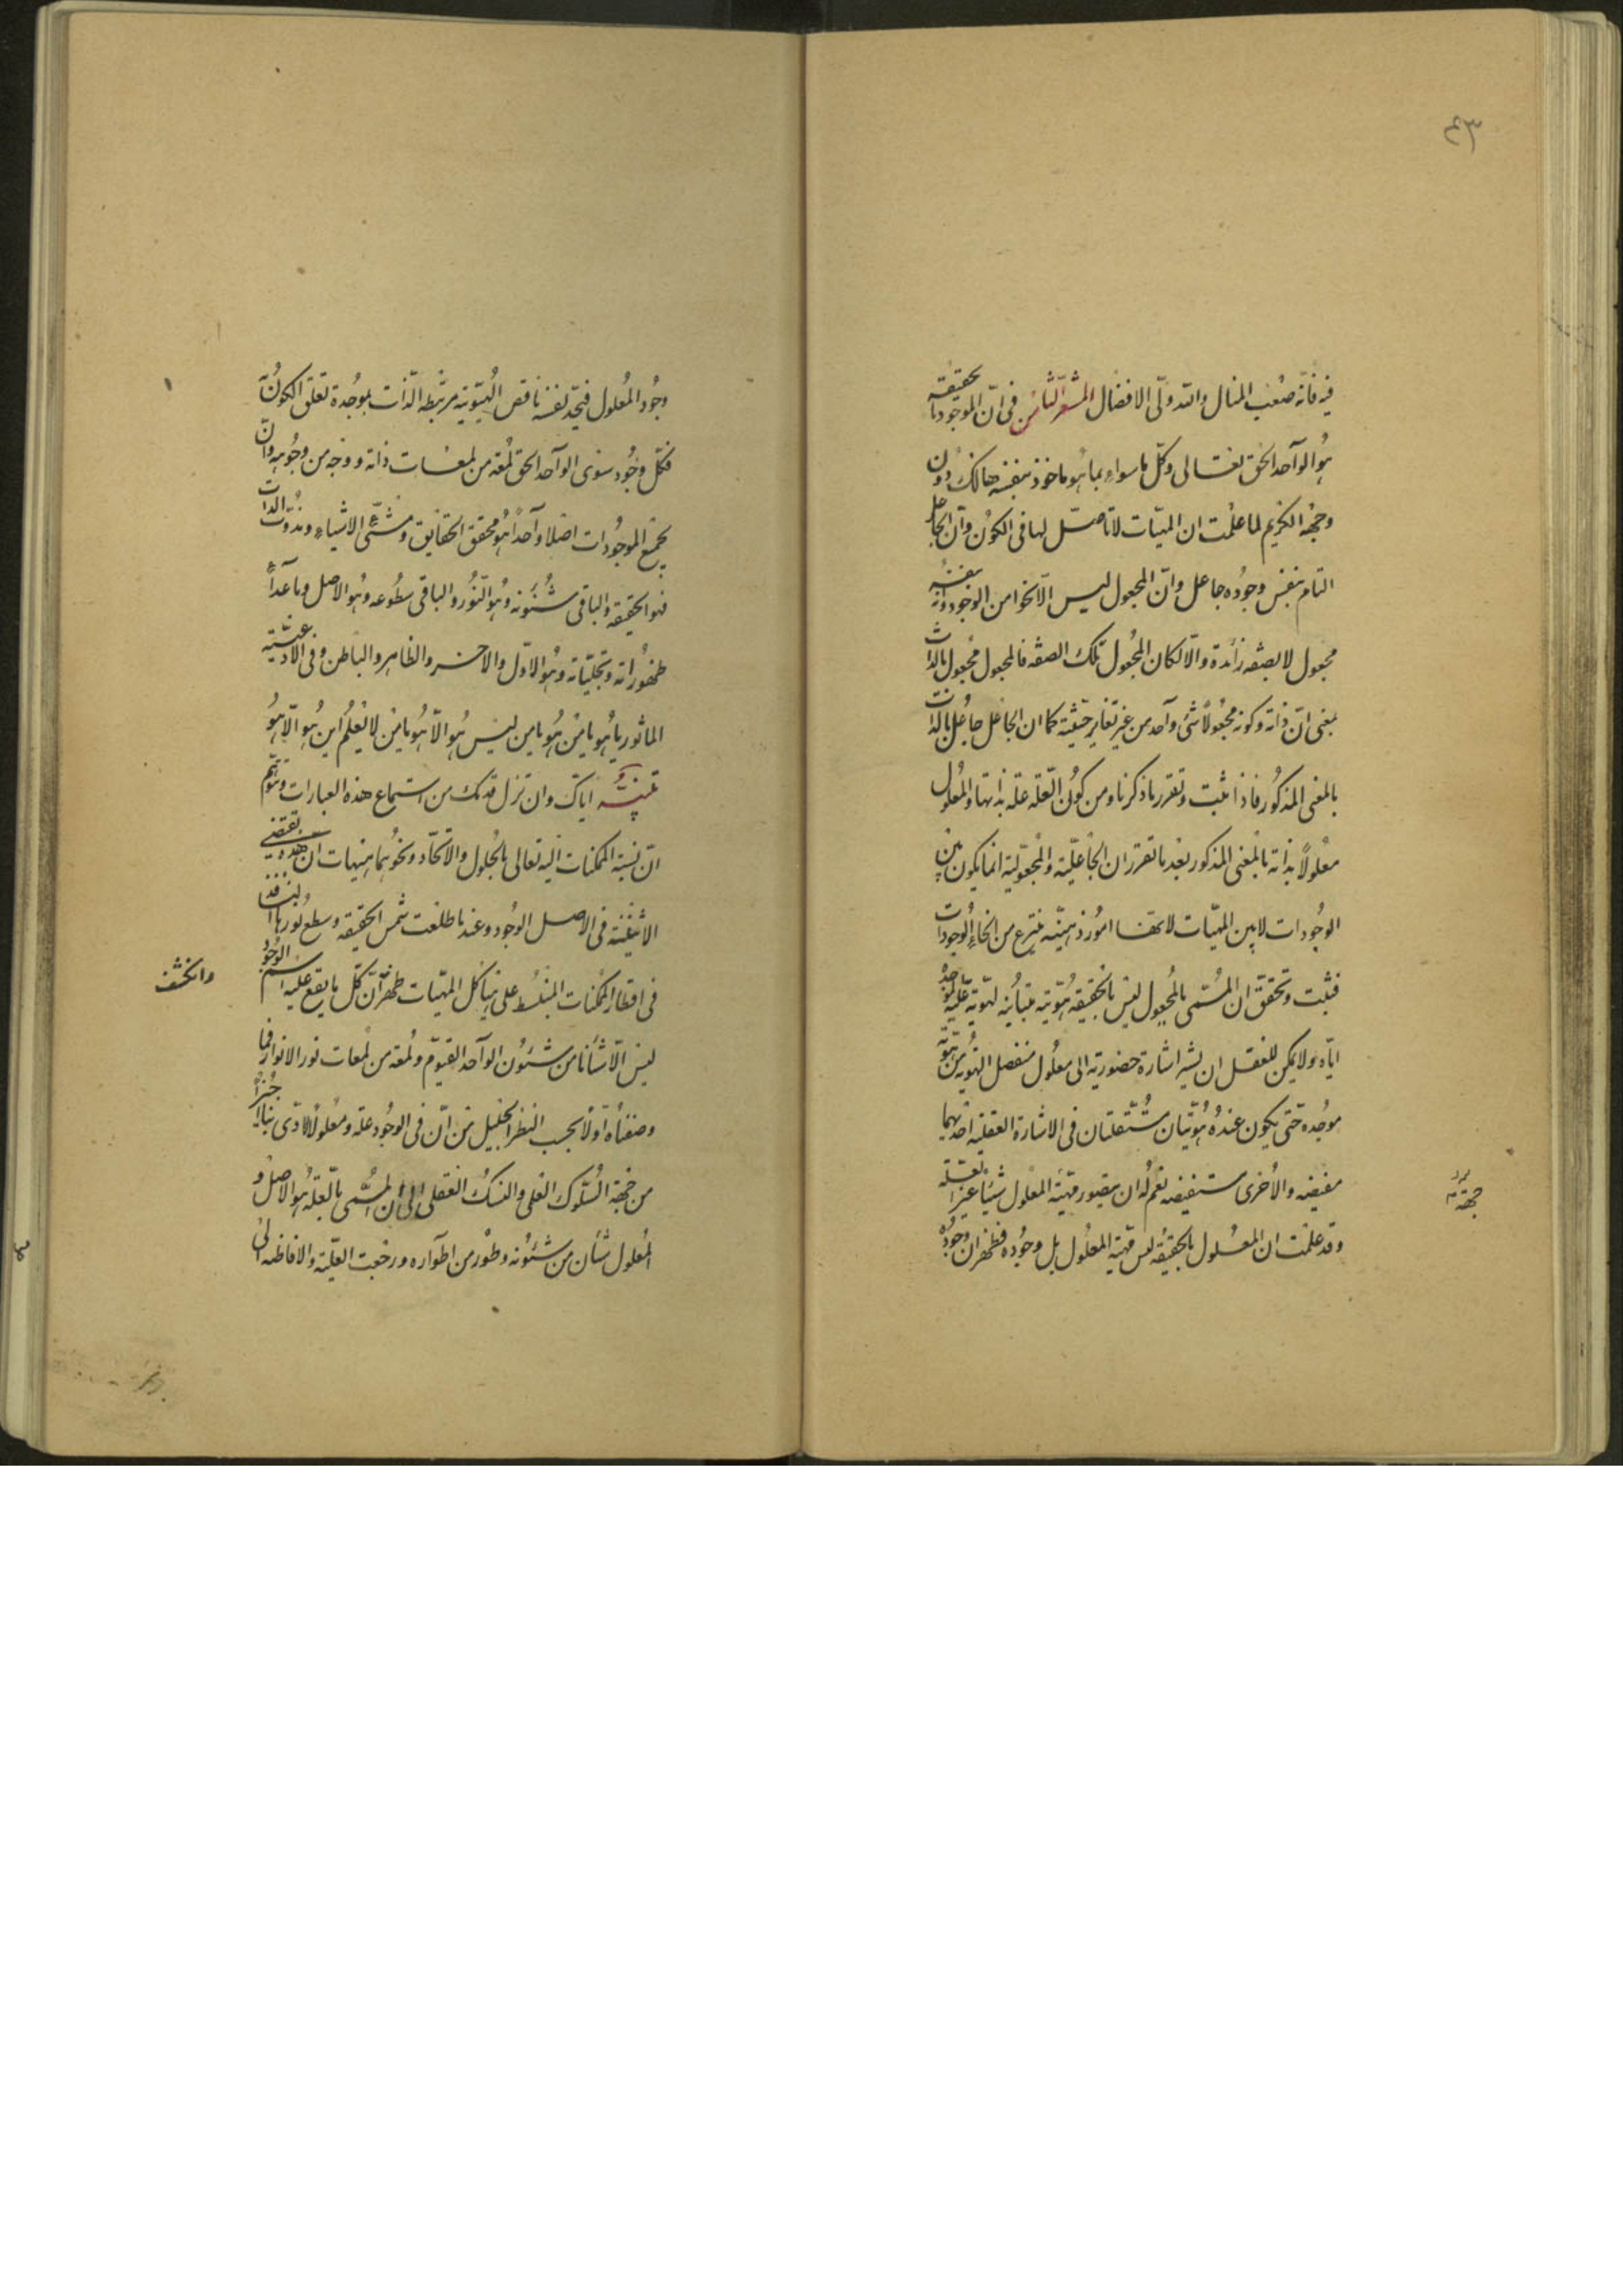 ٤٣
فيه فانّه صعب المنال والله ولّى الافضال المشعر الثامن فى انّ الموجود بالحقيقة
هو الواحد الحق تعالى وكلّ ما سواه بما هو ماخوذ بنفسه هالك دون
وجهه الكريم لما علمت ان المهيّات لا تاصّل لها فى الكون وان الجاعل
التام بنفس وجوده جاعل وانّ المجعول ليس الّا نحوا من الوجود وانّه بنفسه
مجعول لا بصفة زائدة والّا لكان المجعول تلك الصفة فالمجعول مجعول بالذات
بمعنى انّ ذاته وكونه مجعولاً شئ واحد من غير تغاير حيثية كما ان الجاعل جاعل بالذات
بالمعنى المذكور فاذا ثبت وتقرر ما ذكرنا ومن كون العلّة علّة بذاتها والمعلول
معلولاً بذاته بالمعنى المذكور بعد ما تقرر ان الجاعليّة والمجعوليّة انما يكون بين
الوجودات لا بين المهيّات لانها امور ذهنيّة ينتزع من انحاء الوجودات
فثبت وتحقق ان المسمّى بالمجعول ليس بالحقيقة هويّة مباينة لهويّة علّته الموجدة
ايّاه ولا يمكن للعقل ان يشير اشارة حضورية الى معلول منفصل الهويّة من هويّة
موجده حتّى يكون عنده هويّتان مستقلتان فى الاشارة العقلية احدیهما
مفيضه والاخرى مستفيضه نعم له ان يتصور مهيّة المعلول شيئا غير العلّة
وقد علمت ان المعلول بالحقيقة ليس مهيّة المعلول بل وجوده فظهر ان وجود
وجود المعلول فيحد نفسه ناقص الهويّة مرتبطه الذات بموجده تعلق الكون
فكل وجود سوى الواحد الحق لمعة من لمعات ذاته ووجه من وجوهه وانّ
بجميع الموجودات اصلا واحدا هو محقق الحقايق ومشيّئ الاشياء ومذوّت الذوات
فهو الحقيقة والباقى شئونه وهو النور والباقى سطوعه وهو الاصل وما عداه
ظهوراته وتجلياته وهو الاول والاخر والظاهر والباطن وفى الادعية
الماثور يا هو يا من هو يا من ليس هو الّا هو يا من لا يعلم اين هو الّا هو
تنبيه ايّاك وان تزل قدمك من استماع هذه العبارات وتتوهم
انّ نسبة الممكنات اليه تعالى بالحلول والاتّحاد ونحوهما هيهات انّ هذه يقتضى
الاثنينيّة فى الاصل الوجود وعند ما طلعت شمس الحقيقة وسطع نورها النافذ
فى اقطار الممكنات المنبسط على هياكل المهيّات ظهر انّ كلّ ما يقع عليه اسم الوجود
وانكشف
ليس الّا شأنا من شئون الواحد القيوم ولمعة من لمعات نور الانوار فما
وصفناه اوّلا بحسب النظر الجليل من انّ فى الوجود علّة ومعلولا ادّى بنا اخيرا
من جهة السلوك العلمى والنسك العقلى الى ان المسمّى بالعلّة هو الاصل و
المعلول شأن من شئونه وطور من اطواره ورجعت العلّية والافاضة الى